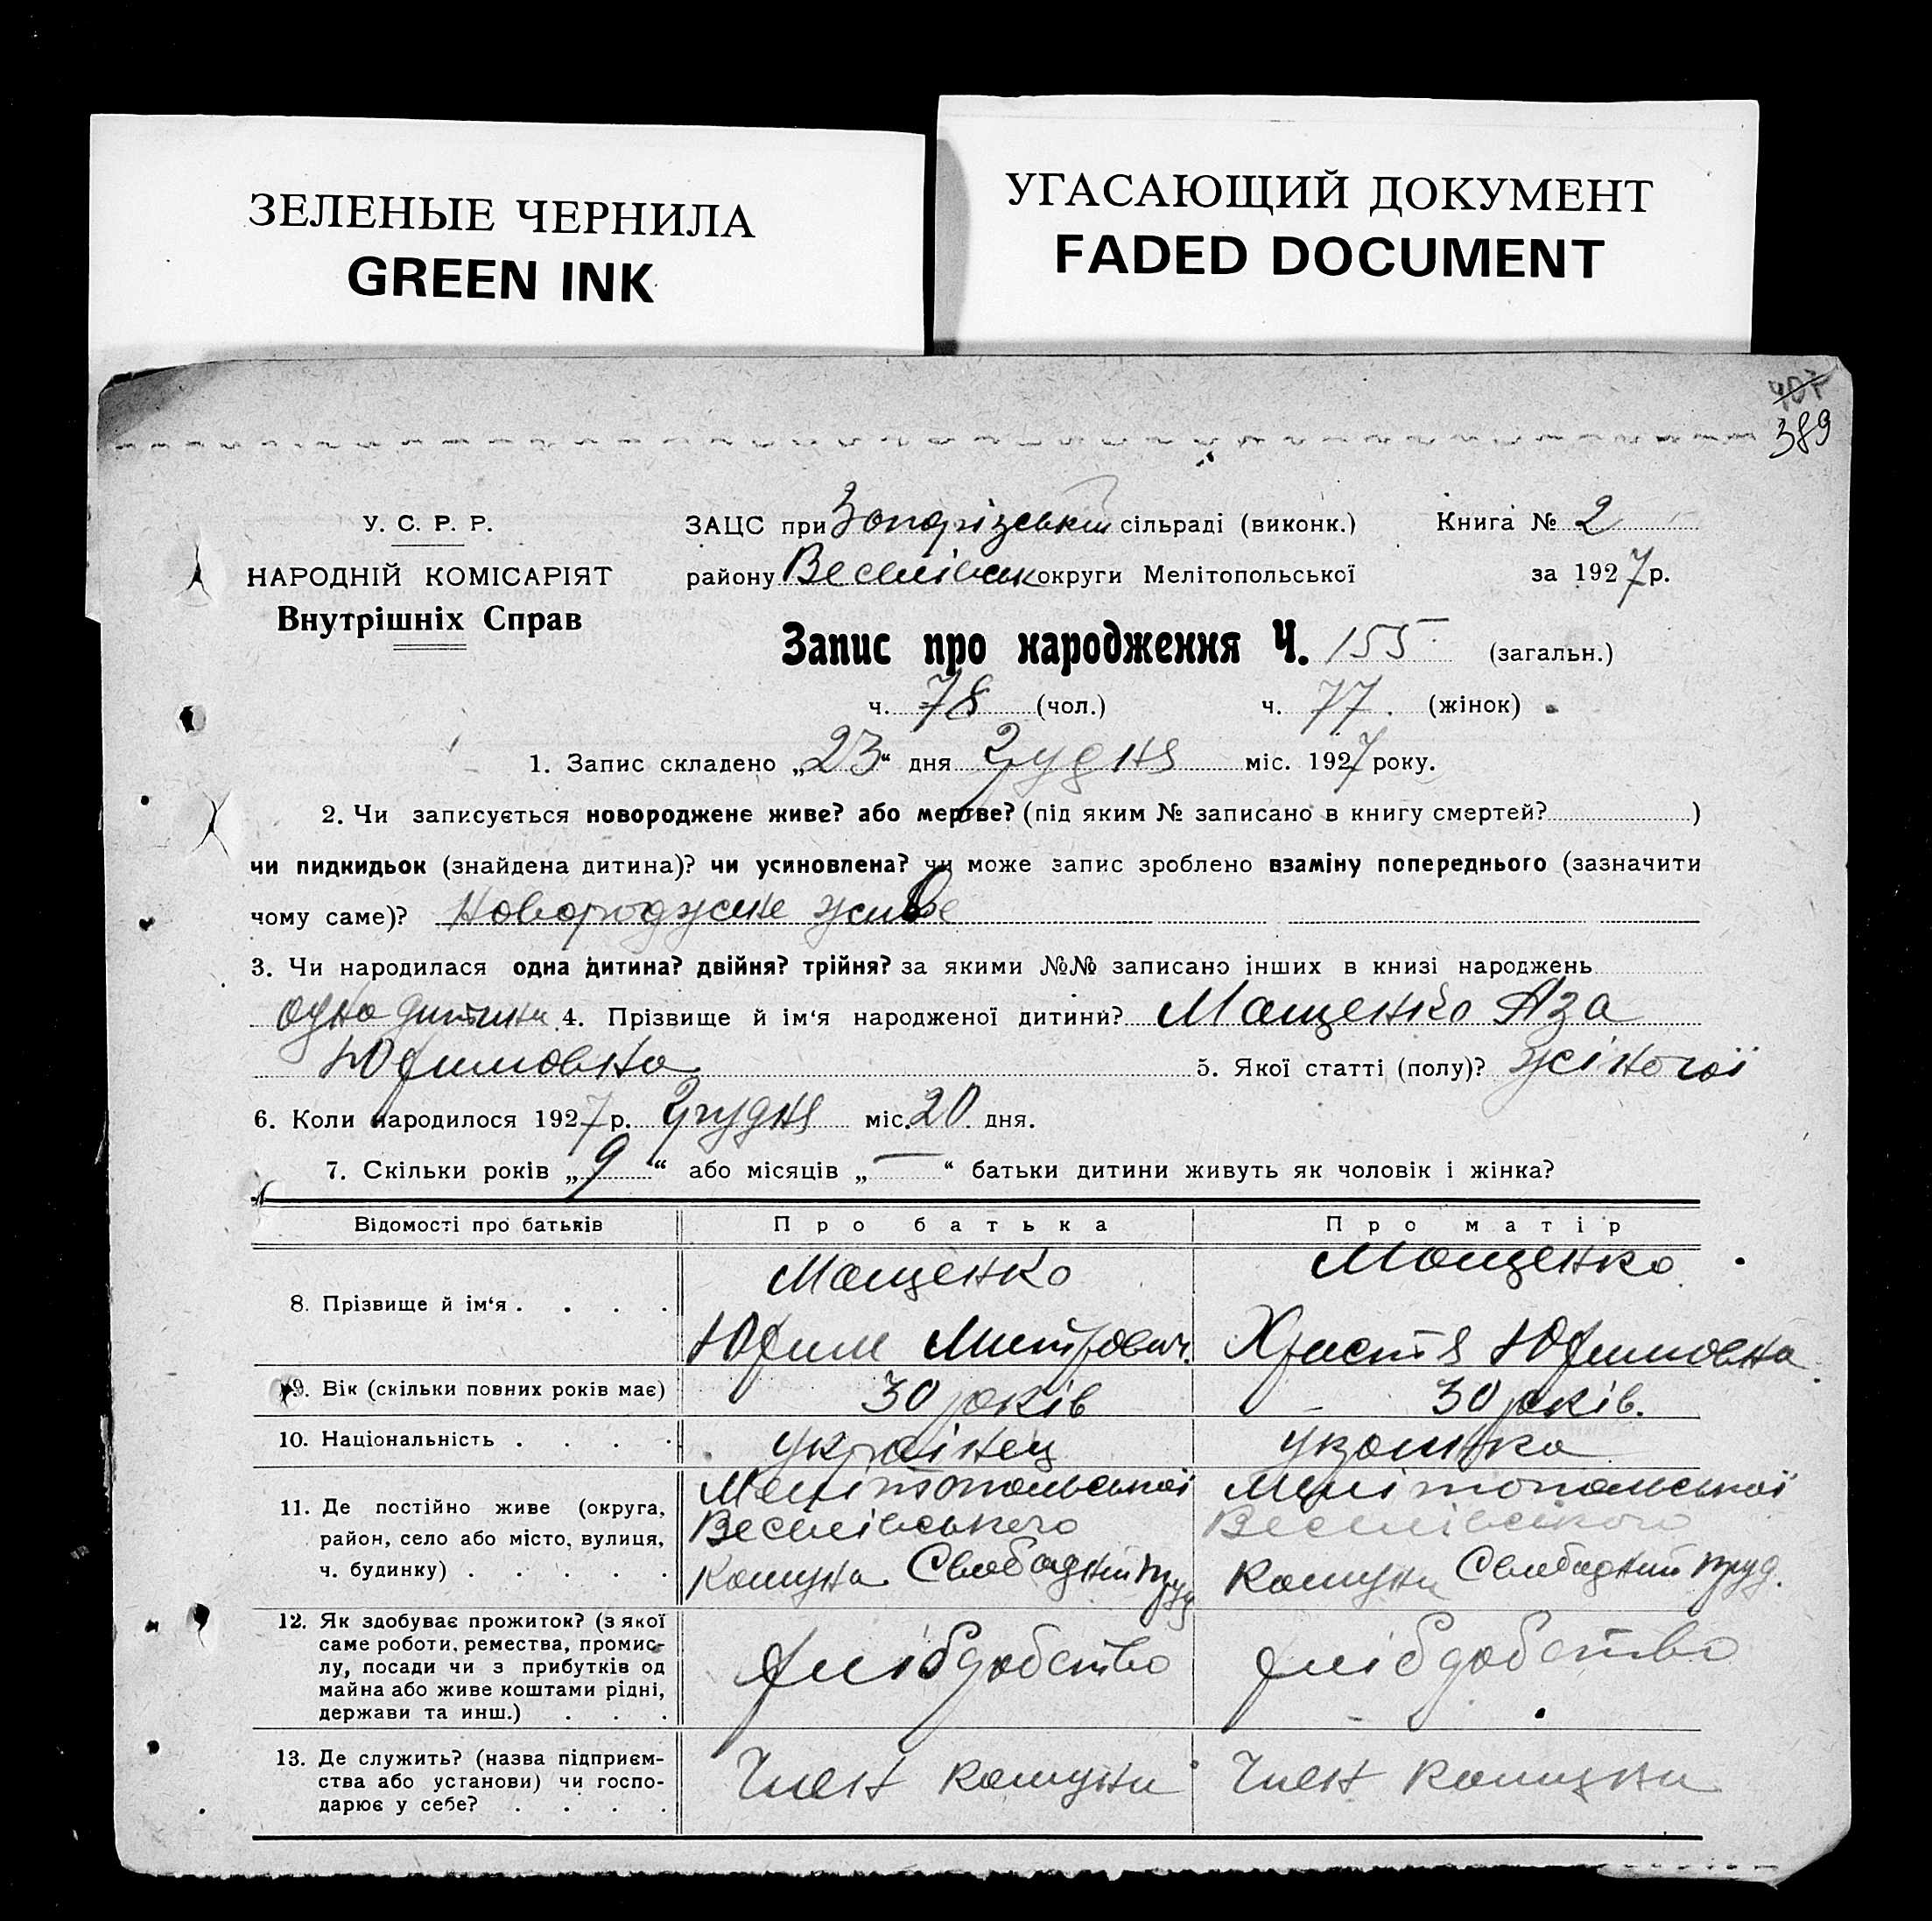 ЗЕЛЕНЫЕ ЧЕРНИЛА
GREEN INK
УГАСАЮЩИЙ ДОКУМЕНТ
FADED DOCUMENT
407
389
У. С. Р. Р.
НАРОДНІЙ КОМІСАРІЯТ
Внутрішніх Справ
ЗАЦС при Запорізській сільраді (виконк.) Книга № 2
району Веселівськ округи Мелітопольської за 1927 р.
Запис про народження Ч. 155 (загальн.)
ч. 78 (чол.) ч. 77. (жінок)
1. Запис складено „23“ дня Грудня міс. 1927 року.
2. Чи записується новороджене живе? або мертве? (під яким № записано в книгу смертей? )
чи пидкидьок (знайдена дитина)? чи усиновлена? чи може запис зроблено взаміну попереднього (зазначити
чому саме)? Новороджене живе
3. Чи народилася одна дитина? двійня? трійня? за якими №№ записано інших в книзі народжень
одна дитина 4. Прізвище й ім‘я народженої дитини? Мащенко Аза
Юфимовна 5. Якої статті (полу)? жіночої
6. Коли народилося 1927 р. Грудня міс. 20 дня.
7. Скільки років „9“ або місяців „—“ батьки дитини живуть як чоловік і жінка?
Відомості про батьків Про батька Про матір
8. Прізвище й ім‘я . . . . Мащенко Юфим Митрович. Мащенко Христя Юфимовна
9. Вік (скільки повних років має) 30 років 30 років.
10. Національність . . . . українец украинка
11. Де постійно живе (округа, Мелітопольської Мелітопольської
район, село або місто, вулиця, Веселівського Веселівського
ч. будинку) . . . . . Комуна Свободний труд Комуни Свободний труд.
12. Як здобуває прожиток? (з якої
саме роботи, ремества, промис-
лу, посади чи з прибутків од
майна або живе коштами рідні,
держави та инш.) . . . хлібдобство хлібдобство
13. Де служить? (назва підприєм-
ства або установи) чи госпо-
дарює у себе? . . . . Член комуни Член комуни